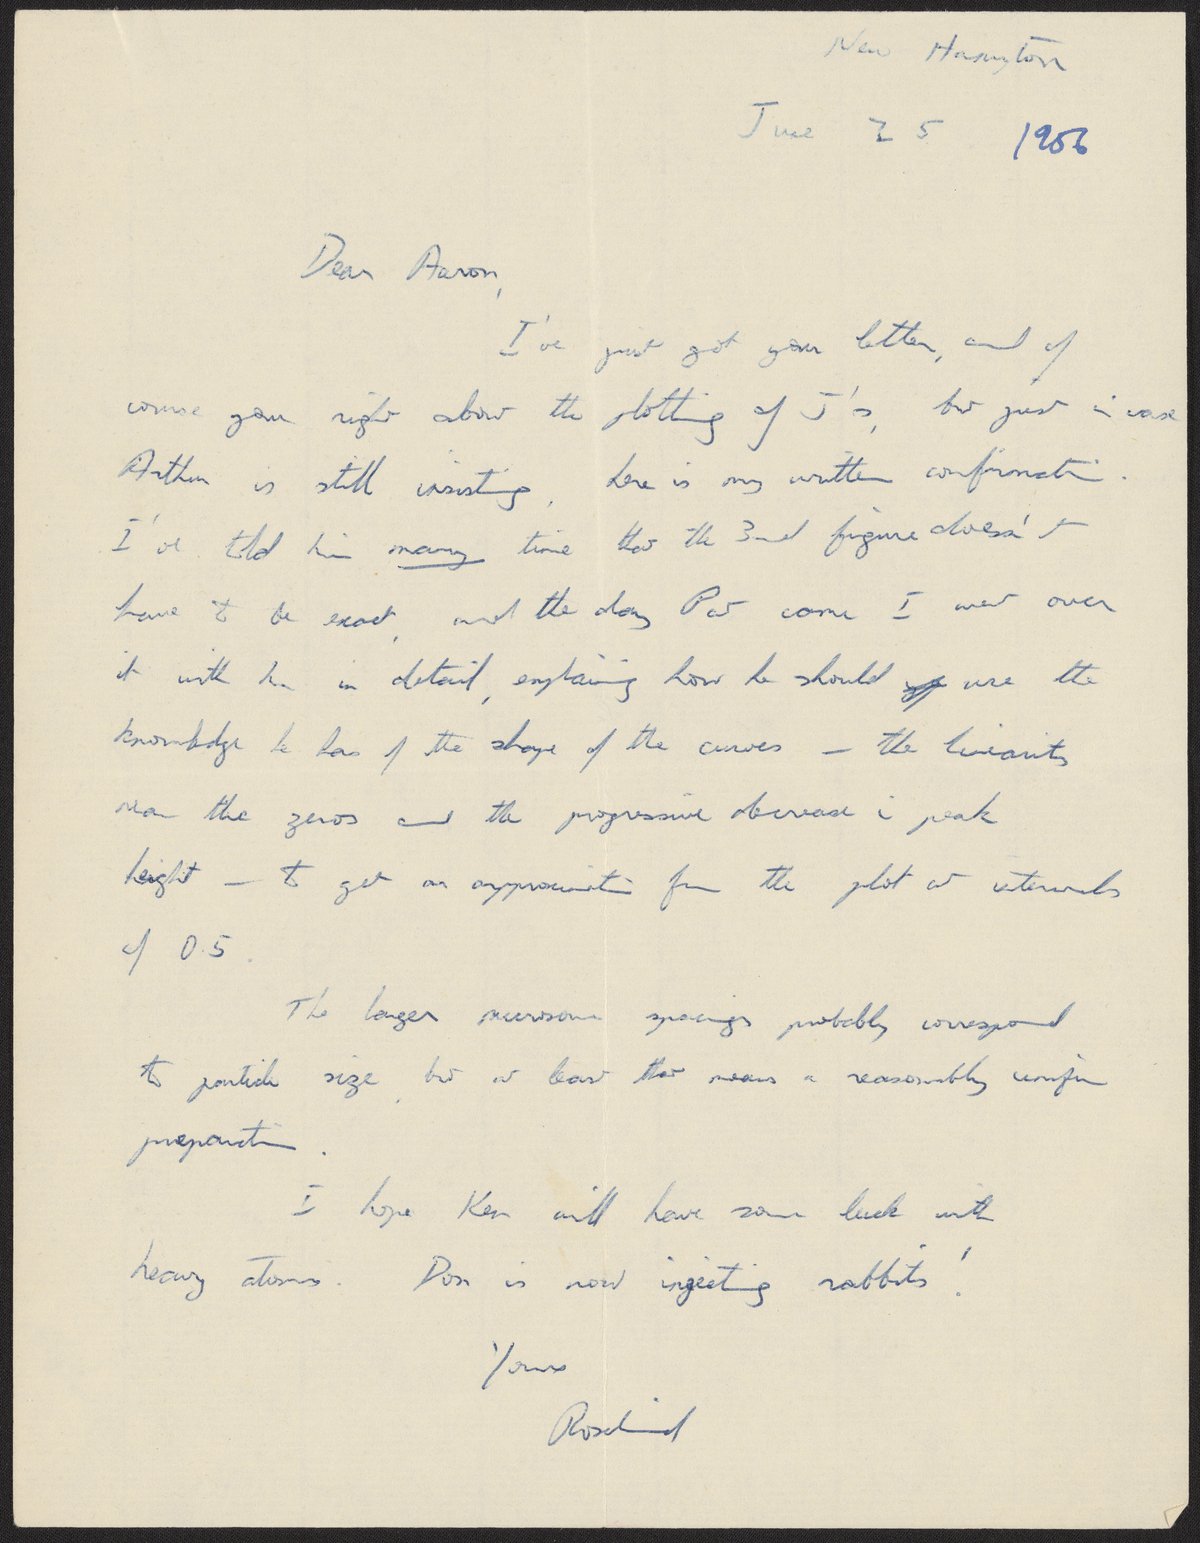 New Hampton
June 25 1956
Dear Aaron,
I've just got your letter, and of
course your right about the plotting of J's, but just in case
Arthur is still insisting, here is my written confirmation.
I've told him many time that the 3rd figure doesn't
have to be exact, and the day Pat came I went over
it with him in detail, explaining how he should use the
knowledge he has of the shape of the curves – the linearity
near the zeros and the progressive decrease in peak
height – to get an approximation from the plot at intervals
of 0.5.
The larger microsome spacings probably correspond
to particle size, but at least that means a reasonably uniform
preparation.
I hope Ken will have some luck with
heavy atoms. Don is now injecting rabbits!
Yours
Rosalind